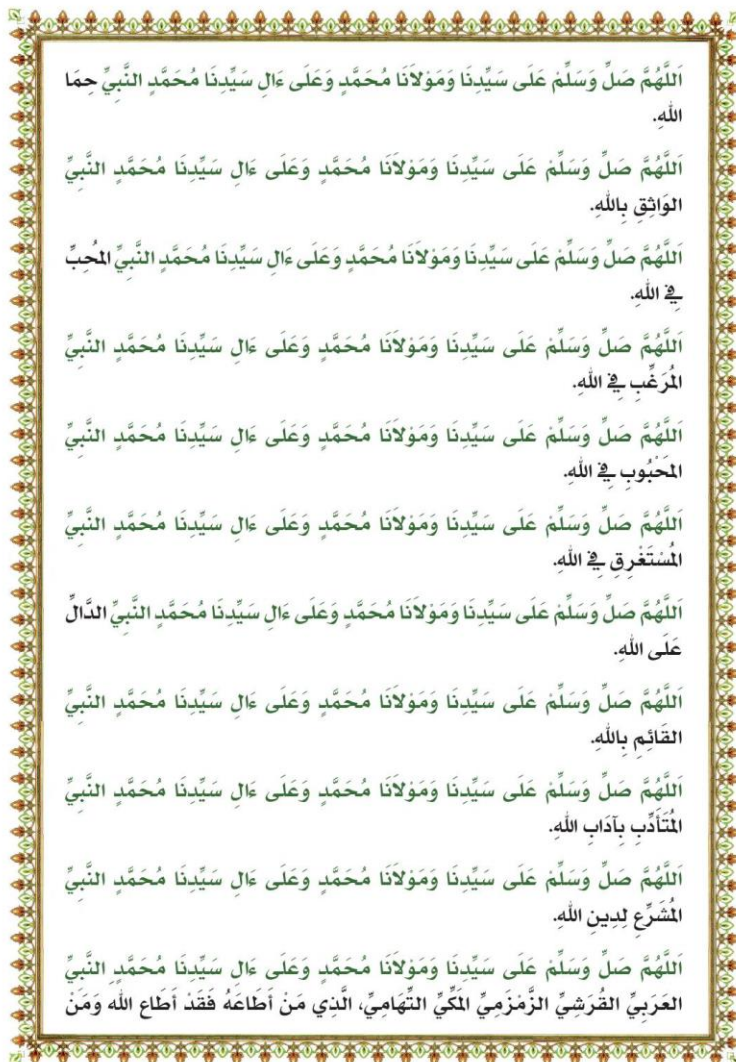 اَللَّهُمَّ صَلِّ وَسَلِّمْ عَلَى سَيِّدِنَا وَمَوْلاَنَا مُحَمَّدٍ وَعَلَى ءَالِ سَيِّدِنَا مُحَمَّدٍ النَّبِيِّ حِمَا
اللهِ.
اَللَّهُمَّ صَلِّ وَسَلِّمْ عَلَى سَيِّدِنَا وَمَوْلاَنَا مُحَمَّدٍ وَعَلَى ءَالِ سَيِّدِنَا مُحَمَّدٍ النَّبِيِّ
الوَاثِقِ بِاللهِ.
اَللَّهُمَّ صَلِّ وَسَلِّمْ عَلَى سَيِّدِنَا وَمَوْلاَنَا مُحَمَّدٍ وَعَلَى ءَالِ سَيِّدِنَا مُحَمَّدٍ النَّبِيِّ المُحِبِّ
فِي اللهِ.
اَللَّهُمَّ صَلِّ وَسَلِّمْ عَلَى سَيِّدِنَا وَمَوْلاَنَا مُحَمَّدٍ وَعَلَى ءَالِ سَيِّدِنَا مُحَمَّدٍ النَّبِيِّ
المُرَغِّبِ فِي اللهِ.
اَللَّهُمَّ صَلِّ وَسَلِّمْ عَلَى سَيِّدِنَا وَمَوْلاَنَا مُحَمَّدٍ وَعَلَى ءَالِ سَيِّدِنَا مُحَمَّدٍ النَّبِيِّ
المَحْبُوبِ فِي اللهِ.
اَللَّهُمَّ صَلِّ وَسَلِّمْ عَلَى سَيِّدِنَا وَمَوْلاَنَا مُحَمَّدٍ وَعَلَى ءَالِ سَيِّدِنَا مُحَمَّدٍ النَّبِيِّ
المُسْتَغْرِقِ فِي اللهِ.
اَللَّهُمَّ صَلِّ وَسَلِّمْ عَلَى سَيِّدِنَا وَمَوْلاَنَا مُحَمَّدٍ وَعَلَى ءَالِ سَيِّدِنَا مُحَمَّدٍ النَّبِيِّ الدَّالِّ
عَلَى اللهِ.
اَللَّهُمَّ صَلِّ وَسَلِّمْ عَلَى سَيِّدِنَا وَمَوْلاَنَا مُحَمَّدٍ وَعَلَى ءَالِ سَيِّدِنَا مُحَمَّدٍ النَّبِيِّ
القَائِمِ بِاللهِ.
اَللَّهُمَّ صَلِّ وَسَلِّمْ عَلَى سَيِّدِنَا وَمَوْلاَنَا مُحَمَّدٍ وَعَلَى ءَالِ سَيِّدِنَا مُحَمَّدٍ النَّبِيِّ
المُتَأَدِّبِ بِآدَابِ اللهِ.
اَللَّهُمَّ صَلِّ وَسَلِّمْ عَلَى سَيِّدِنَا وَمَوْلاَنَا مُحَمَّدٍ وَعَلَى ءَالِ سَيِّدِنَا مُحَمَّدٍ النَّبِيِّ
المُشَرِّعِ لِدِينِ اللهِ.
اَللَّهُمَّ صَلِّ وَسَلِّمْ عَلَى سَيِّدِنَا وَمَوْلاَنَا مُحَمَّدٍ وَعَلَى ءَالِ سَيِّدِنَا مُحَمَّدٍ النَّبِيِّ
العَرَبِيِّ القُرَشِيِّ الزَّمْزَمِيِّ المَكِّيِّ التِّهَامِيِّ، الَّذِي مَنْ أَطَاعَهُ فَقَدْ أَطَاعَ الله وَمَنْ